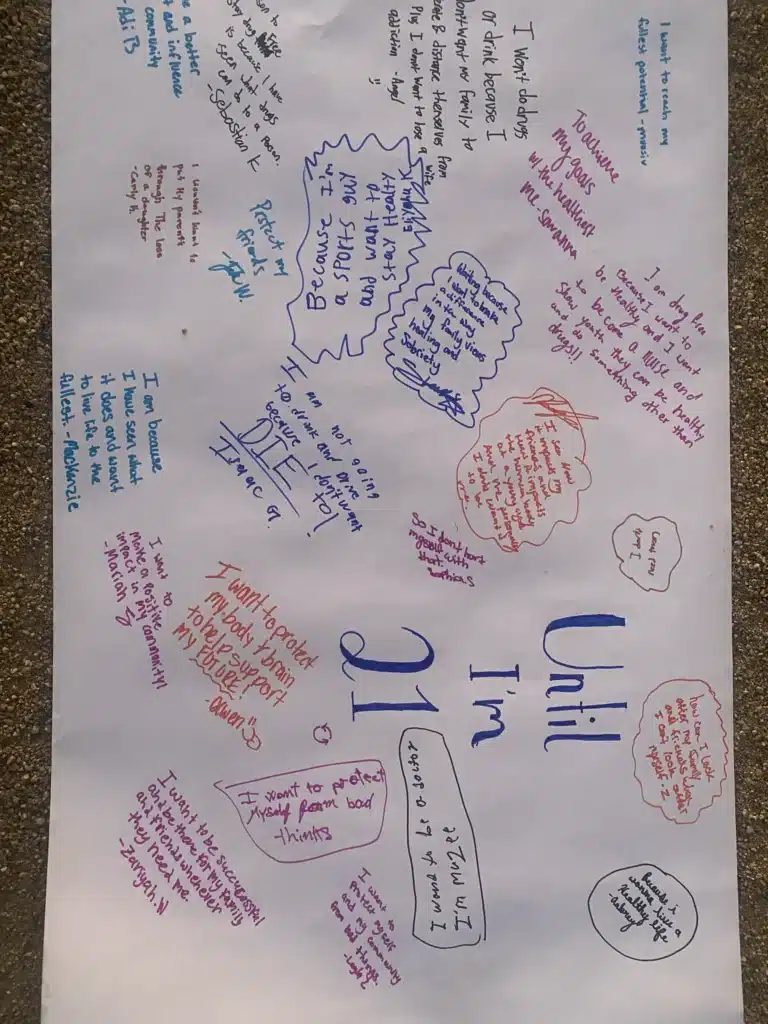 Until
I'm
21
I want to reach my
fullest potential
To achieve
my goals
w/ the healthiest
me - Savanna
I am drug free
Because I want to
be Healthy and I want
to become a nurse and
show youth they can be healthy
and do something other than
drugs!!
I won't do drugs
or drink because I
don't want my family to
& distance themselves from
Plus I don't want to lose a wife
addiction - Angel
a better
and influence
community
- Adi B
Free
drug
is because I have
seen what drugs
can do to a person.
- Sebastian K
I wouldn't want to
put My parents
through The loss
of a daughter
- Carly H.
Protect my
friends
Because I'm
a sports
and
Writing because
I want to make
a difference
in the way
my family views
healing and
Sobriety
I am not going
to drink and drive
because I don't want
to!
DIE
Isaac G.
I am because
I have seen what
it does and want
to live life to the
fullest. - Mackenzie
I see how
it impacts my
friends and
how it impacts
the human body
at a young age
I don't
I don't hurt
myself with
that.
Sophia.S
I want to
make a positive
impact in my community!
- Mariah Z
I want to protect
my body & brain
to help support
my FUTURE!
- Gwen
how can I look
after my family
and friends when
I can't look after
myself. - Z
I want to protect
Myself from bad
thinks
I'm MuZee
I wanna be a
Because i
wanna live a
Healthy life
- Aubrey
I want to be successful
and be there for my family
and friends whenever
they need me.
- Zariyah.N
I want to
protect my self
and my community
from bad things.